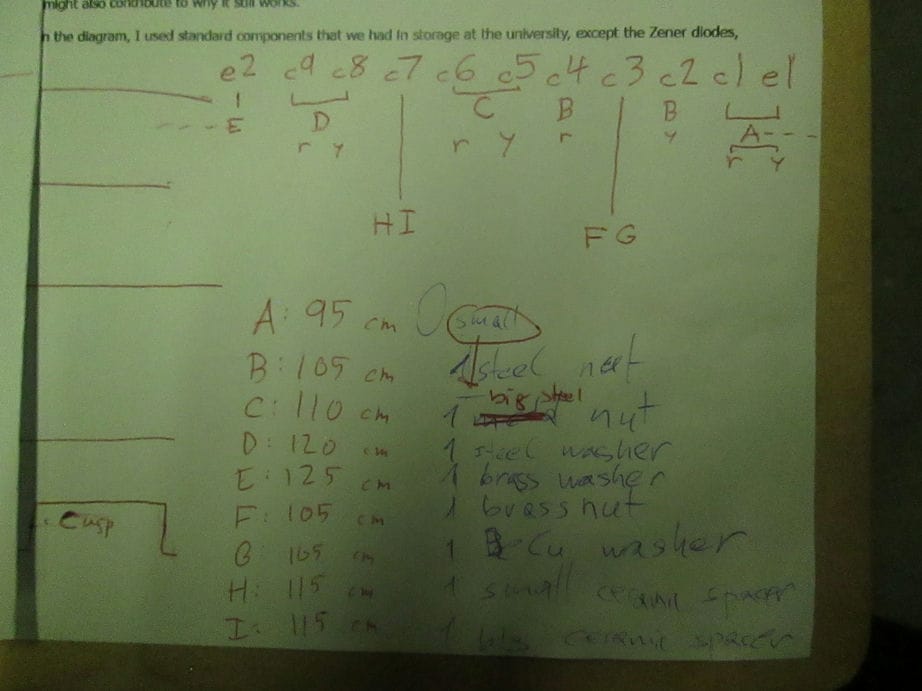 might also contribute to why it still works.
n the diagram, I used standard components that we had in storage at the university, except the Zener diodes,
e2 c9 c8 c7 c6 c5 c4 c3 c2 c1 e1
E D C B B A
r y r y r y r y
HI FG
A: 95 cm small
B: 105 cm 1 steel nut
C: 110 cm 1 big steel nut
D: 120 cm 1 steel washer
E: 125 cm 1 brass washer
F: 105 cm 1 brass nut
G: 105 cm 1 Cu washer
H: 115 cm 1 small ceramic spacer
I: 115 cm 1 big ceramic spacer
Cusp